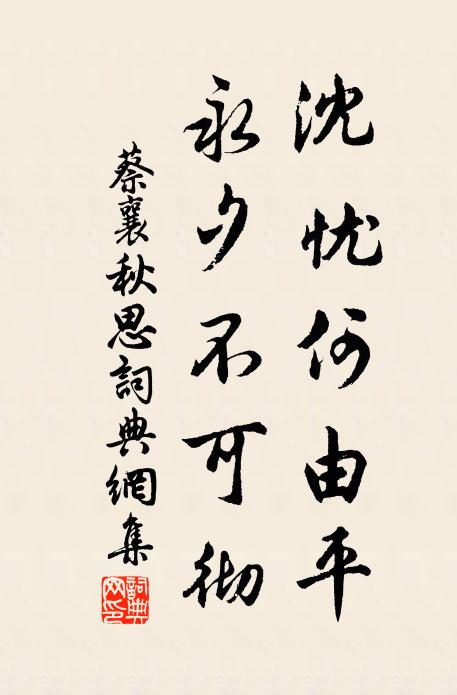 沈忧何由平
永夕不可彻
蔡襄秋思詞典網集
詞典
网印